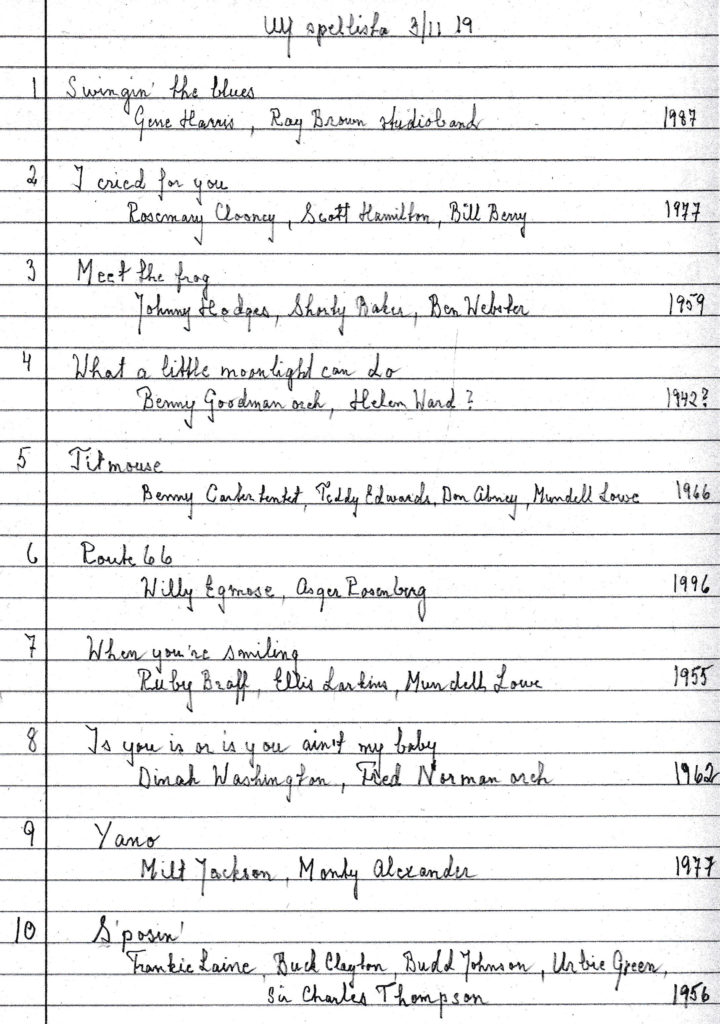 UY spellista 3/11 19
1 Swingin' the blues
Gene Harris, Ray Brown studioband 1987
2 I cried for you
Rosemary Clooney, Scott Hamilton, Bill Berry 1977
3 Meet the frog
Johnny Hodges, Shorty Baker, Ben Webster 1959
4 What a little moonlight can do
Benny Goodman orch, Helen Ward? 1942?
5 Titmouse
Benny Carter tentet, Teddy Edwards, Don Abney, Mundell Lowe 1966
6 Route 66
Willy Egmose, Asger Rosenberg 1996
7 When you're smiling
Ruby Braff, Ellis Larkins, Mundell Lowe 1955
8 Is you is or is you ain't my baby
Dinah Washington, Fred Norman orch 1962
9 Yano
Milt Jackson, Monty Alexander 1977
10 S'posin'
Frankie Laine, Buck Clayton, Budd Johnson, Urbie Green,
Sir Charles Thompson 1956